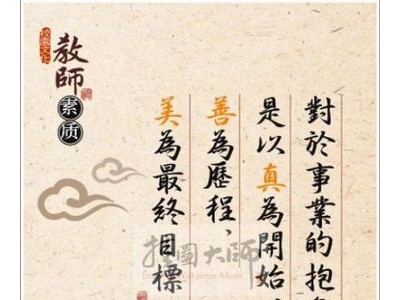 校園文化
教師
素质
對於事業的抱
是以真為開始，
善為歷程、
美為最終目標
圖大師